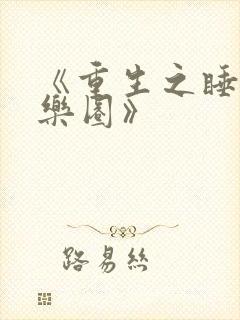 《重生之睡
樂園》
路易絲